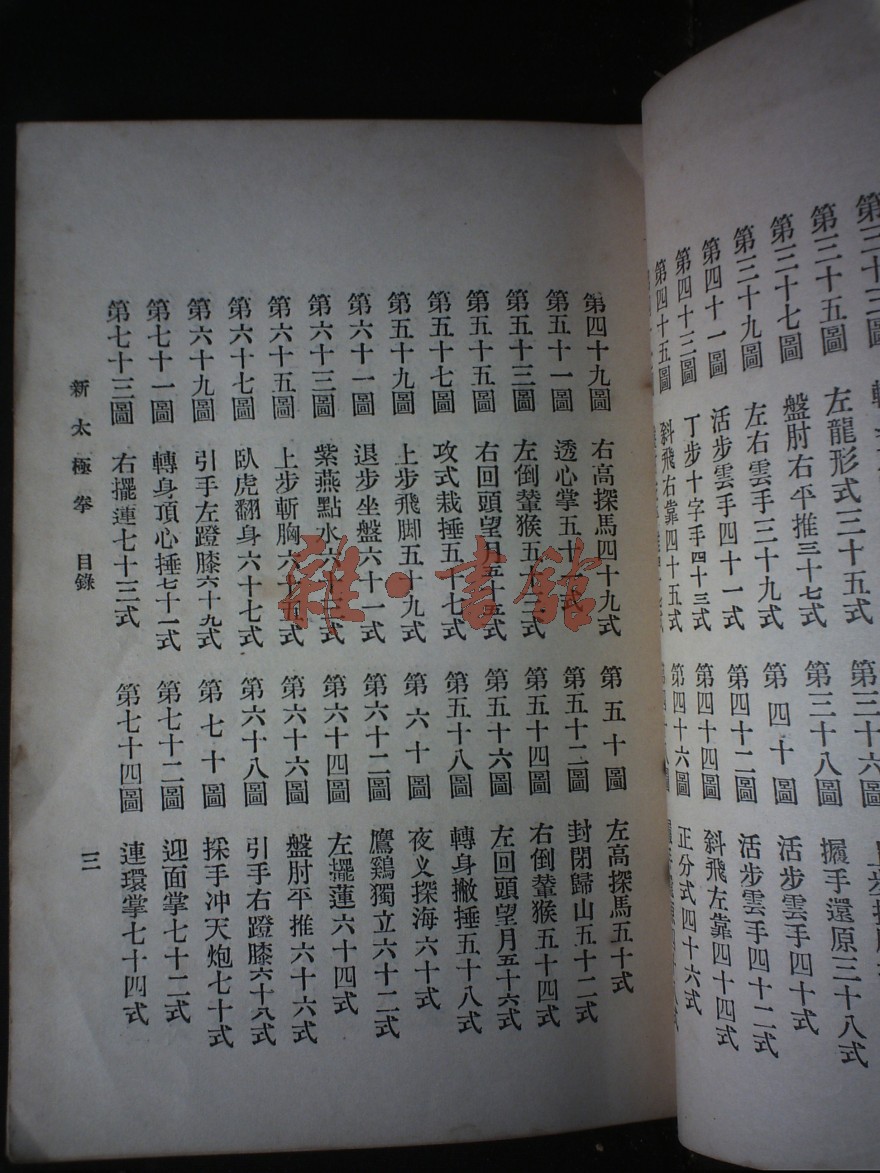 第三十三圖
第三十五圖 左龍形式三十五式
第三十六
第三十七圖 盤肘右平推三十七式
第三十八圖 擴手還原三十八式
第三十九圖 左右雲手三十九式
第四十圖 活步雲手四十式
第四十一圖 活步雲手四十一式
第四十二圖 活步雲手四十二式
第四十三圖 丁步十字手四十三式
第四十四圖 斜飛左靠四十四式
第四十五圖 斜飛右靠四十五式
第四十六圖 正分式四十六式
第四十九圖 右高探馬四十九式
第五十圖 左高探馬五十式
第五十一圖 透心掌五十一式
第五十二圖 封閉歸山五十二式
第五十三圖 左倒輦猴五十三式
第五十四圖 右倒輦猴五十四式
第五十五圖 右回頭望月五十五式
第五十六圖 左回頭望月五十六式
第五十七圖 攻式栽捶五十七式
第五十八圖 轉身撇捶五十八式
第五十九圖 上步飛脚五十九式
第六十圖 夜义探海六十式
第六十一圖 退步坐盤六十一式
第六十二圖 鷹鷄獨立六十二式
第六十三圖 紫燕點水六十三式
第六十四圖 左擺蓮六十四式
第六十五圖 上步斬胸六十五式
第六十六圖 盤肘平推六十六式
第六十七圖 臥虎翻身六十七式
第六十八圖 引手右蹬膝六十八式
第六十九圖 引手左蹬膝六十九式
第七十圖 採手冲天炮七十式
第七十一圖 轉身頂心捶七十一式
第七十二圖 迎面掌七十二式
第七十三圖 右擺連七十三式
第七十四圖 連環掌七十四式
新太極拳 目錄
三
雜·書館